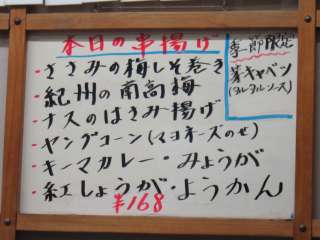 本日の串揚げ
・ささみの梅しそ巻き
・紀州の南高梅
・ナスのはさみ揚げ
・ヤングコーン(マヨネーズのせ)
・キーマカレー・みょうが
・紅しょうが・ようかん
¥168
季節限定
芽キャベツ
(タルタルソース)